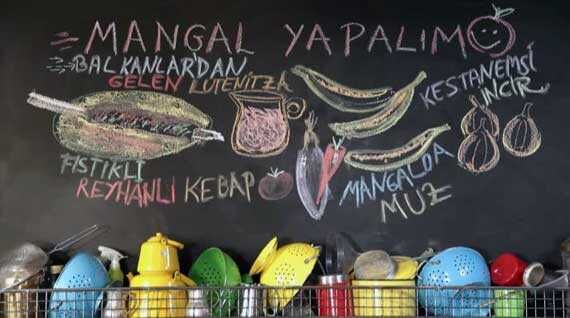 MANGAL YAPALIM
BALKANLARDAN
GELEN LUTENITZA
KESTANEMSİ
İNCİR
FISTIKLI
REYHANLI KEBAP
MANGALDA
MUZ